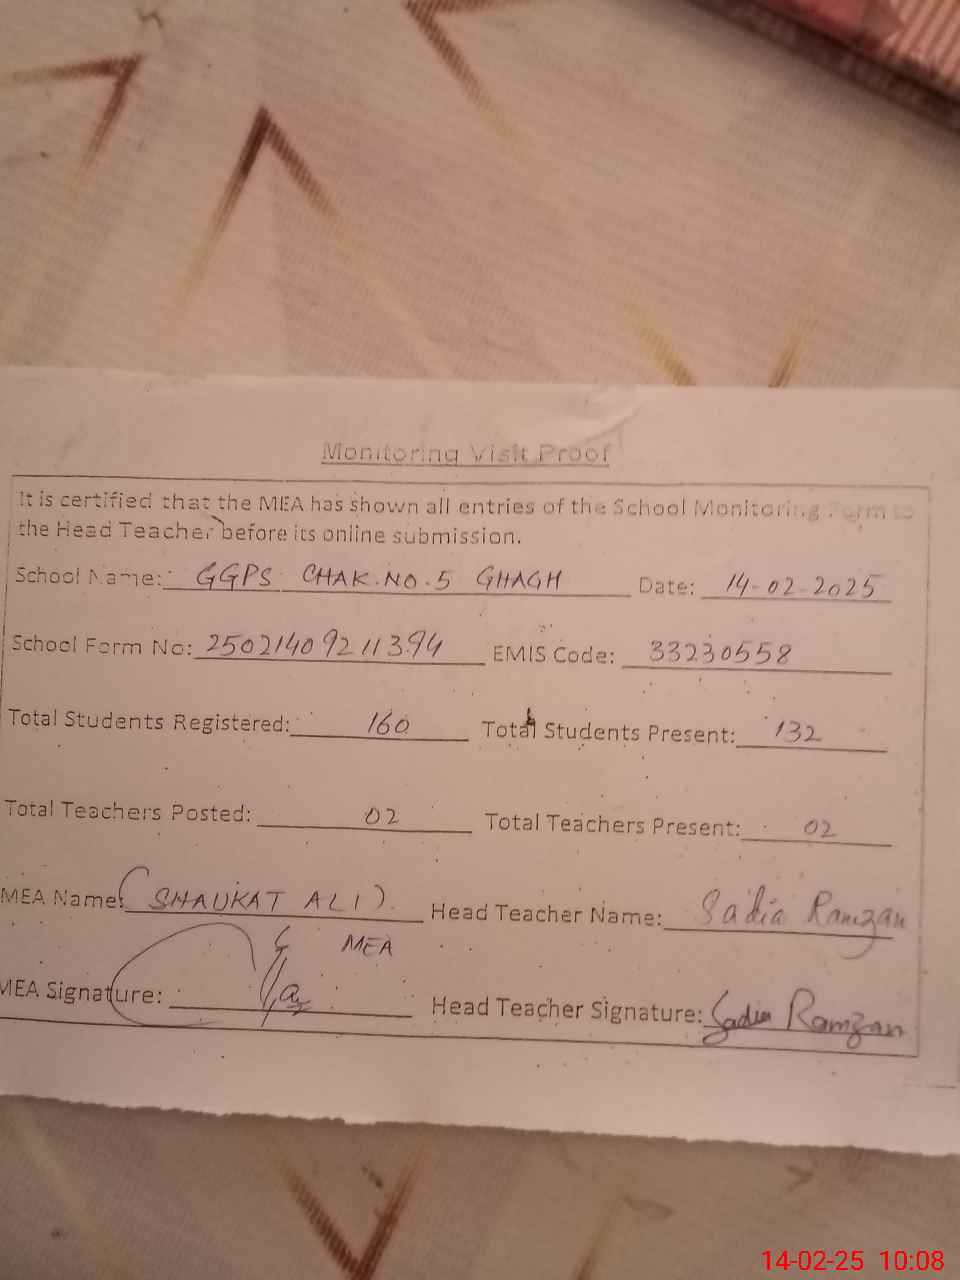 Monitoring Visit Proof
It is certified that the MEA has shown all entries of the School Monitoring Form to
the Head Teacher before its online submission.
School Name: GGPS CHAK.NO.5 GHAGH Date: 14-02-2025
School Form No: 25021409211394 EMIS Code: 33230558
Total Students Registered: 160 Total Students Present: 132
Total Teachers Posted: 02 Total Teachers Present: 02
MEA Name: (SHAUKAT ALI) Head Teacher Name: Sadia Ramzan
MEA
MEA Signature: Head Teacher Signature: Sadia Ramzan
14-02-25 10:08